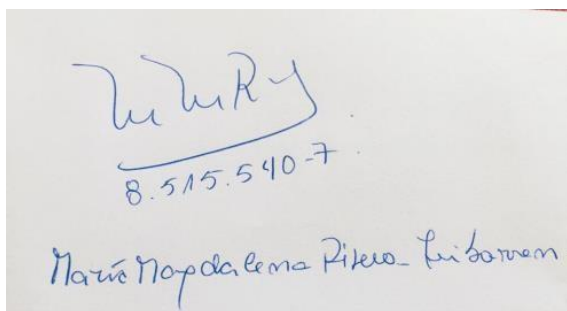 MMRI
8.515.540-7
María Magdalena Rivera Iribarren